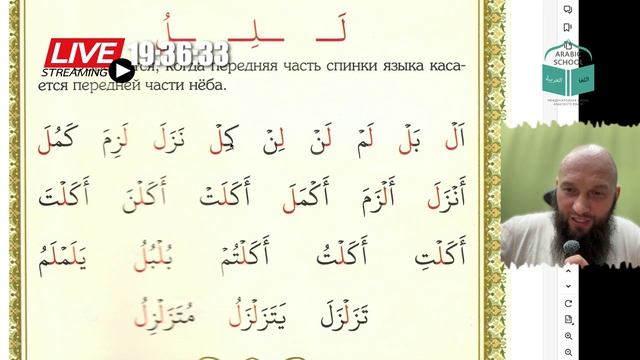 لَـ ـلِـ ـلُ
LIVE 19:36:33
STREAMING
когда передняя часть спинки языка каса-
ется передней части нёба.
ARABIC
SCHOOL
اَلْ بَلْ لَمْ لَنْ لِنْ كِلْ نَزَلَ لَزِمَ كَمُلَ
أَنْزَلَ أَلْزَمَ أَكْمَلَ أَكَلَتْ أَكَلْنَ أَكَلْتَ
أَكَلْتِ أَكَلْتُ أَكَلْتُمْ بُلْبُلُ يَلَمْلَمُ
تَزَلْزَلَ يَتَزَلْزَلُ مُتَزَلْزِلُ